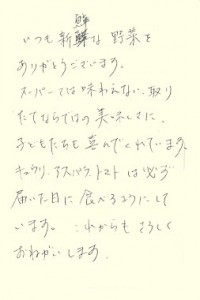 いつも新鮮な 野菜を
ありがとうございます。
スーパーでは味わえない、取り
たてならではの美味しさに、
子どもたちも喜んでくれています。
キュウリ、アスパラ、トマトは必ず
届いた日に食べるようにして
います。 これからもよろしく
おねがいします。